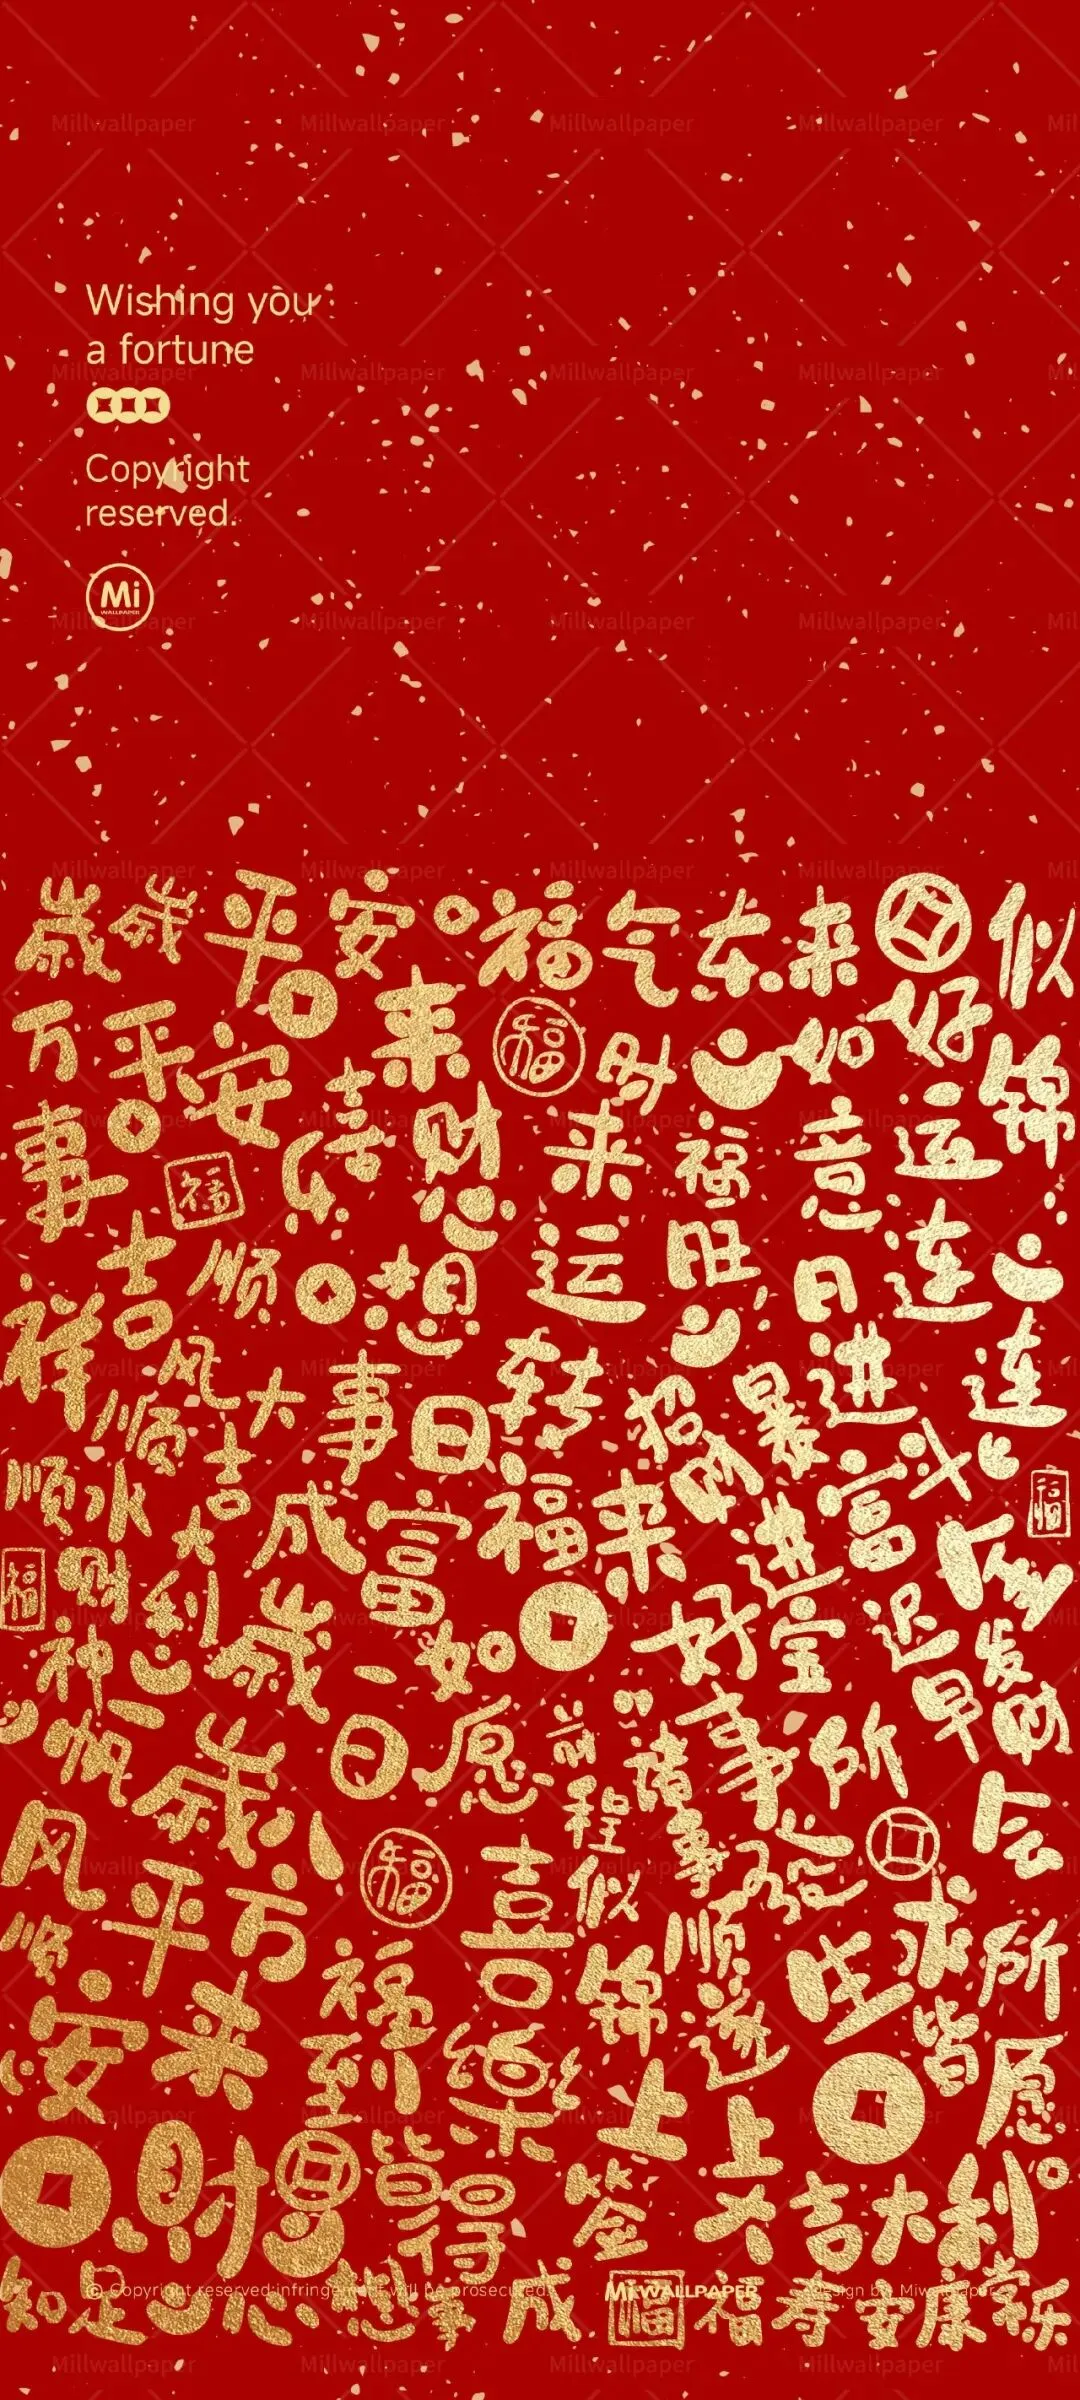 Wishing you
a fortune
Copyright
reserved.
Mi
WALLPAPER
Millwallpaper
歲歲平安
福气东来
好运连连
似锦
万事吉祥
平安喜乐
来财
福
财来运转
福旺
如意
日进斗金
顺风顺水
大吉大利
心想事成
日日
招财进宝
暴富
福来
富
财神
一帆风顺
歲歲平安
如愿
好事发生
所求皆所愿
迟早会发财
前程似锦
诸事顺遂
八方来財
福到
喜樂
皆得
上上签
大吉大利
知足
心想事成
福
福寿安康
常乐
© Copyright reserved:infringement will be prosecuted
Mi WALLPAPER
Design by Miwallpaper